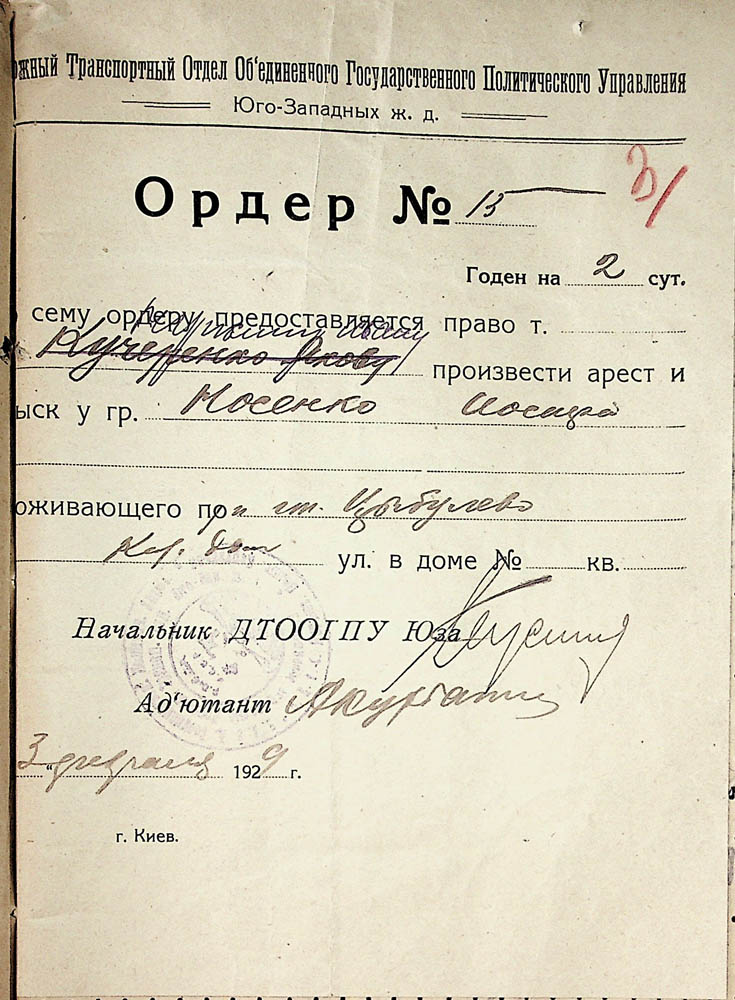 ожный Транспортный Отдел Об'единенного Государственного Политического Управления
Юго-Западных ж. д.
Ордер № 13
3/
Годен на 2 сут.
сему ордеру предоставляется право т.
Кучеренко Якову произвести арест и
ыск у гр. Носенко Иосифа
оживающего по ст. Цыбулево
ул. в доме № кв.
Начальник ДТООГПУ Юза
Ад'ютант
3 февраля 1929 г.
г. Киев.